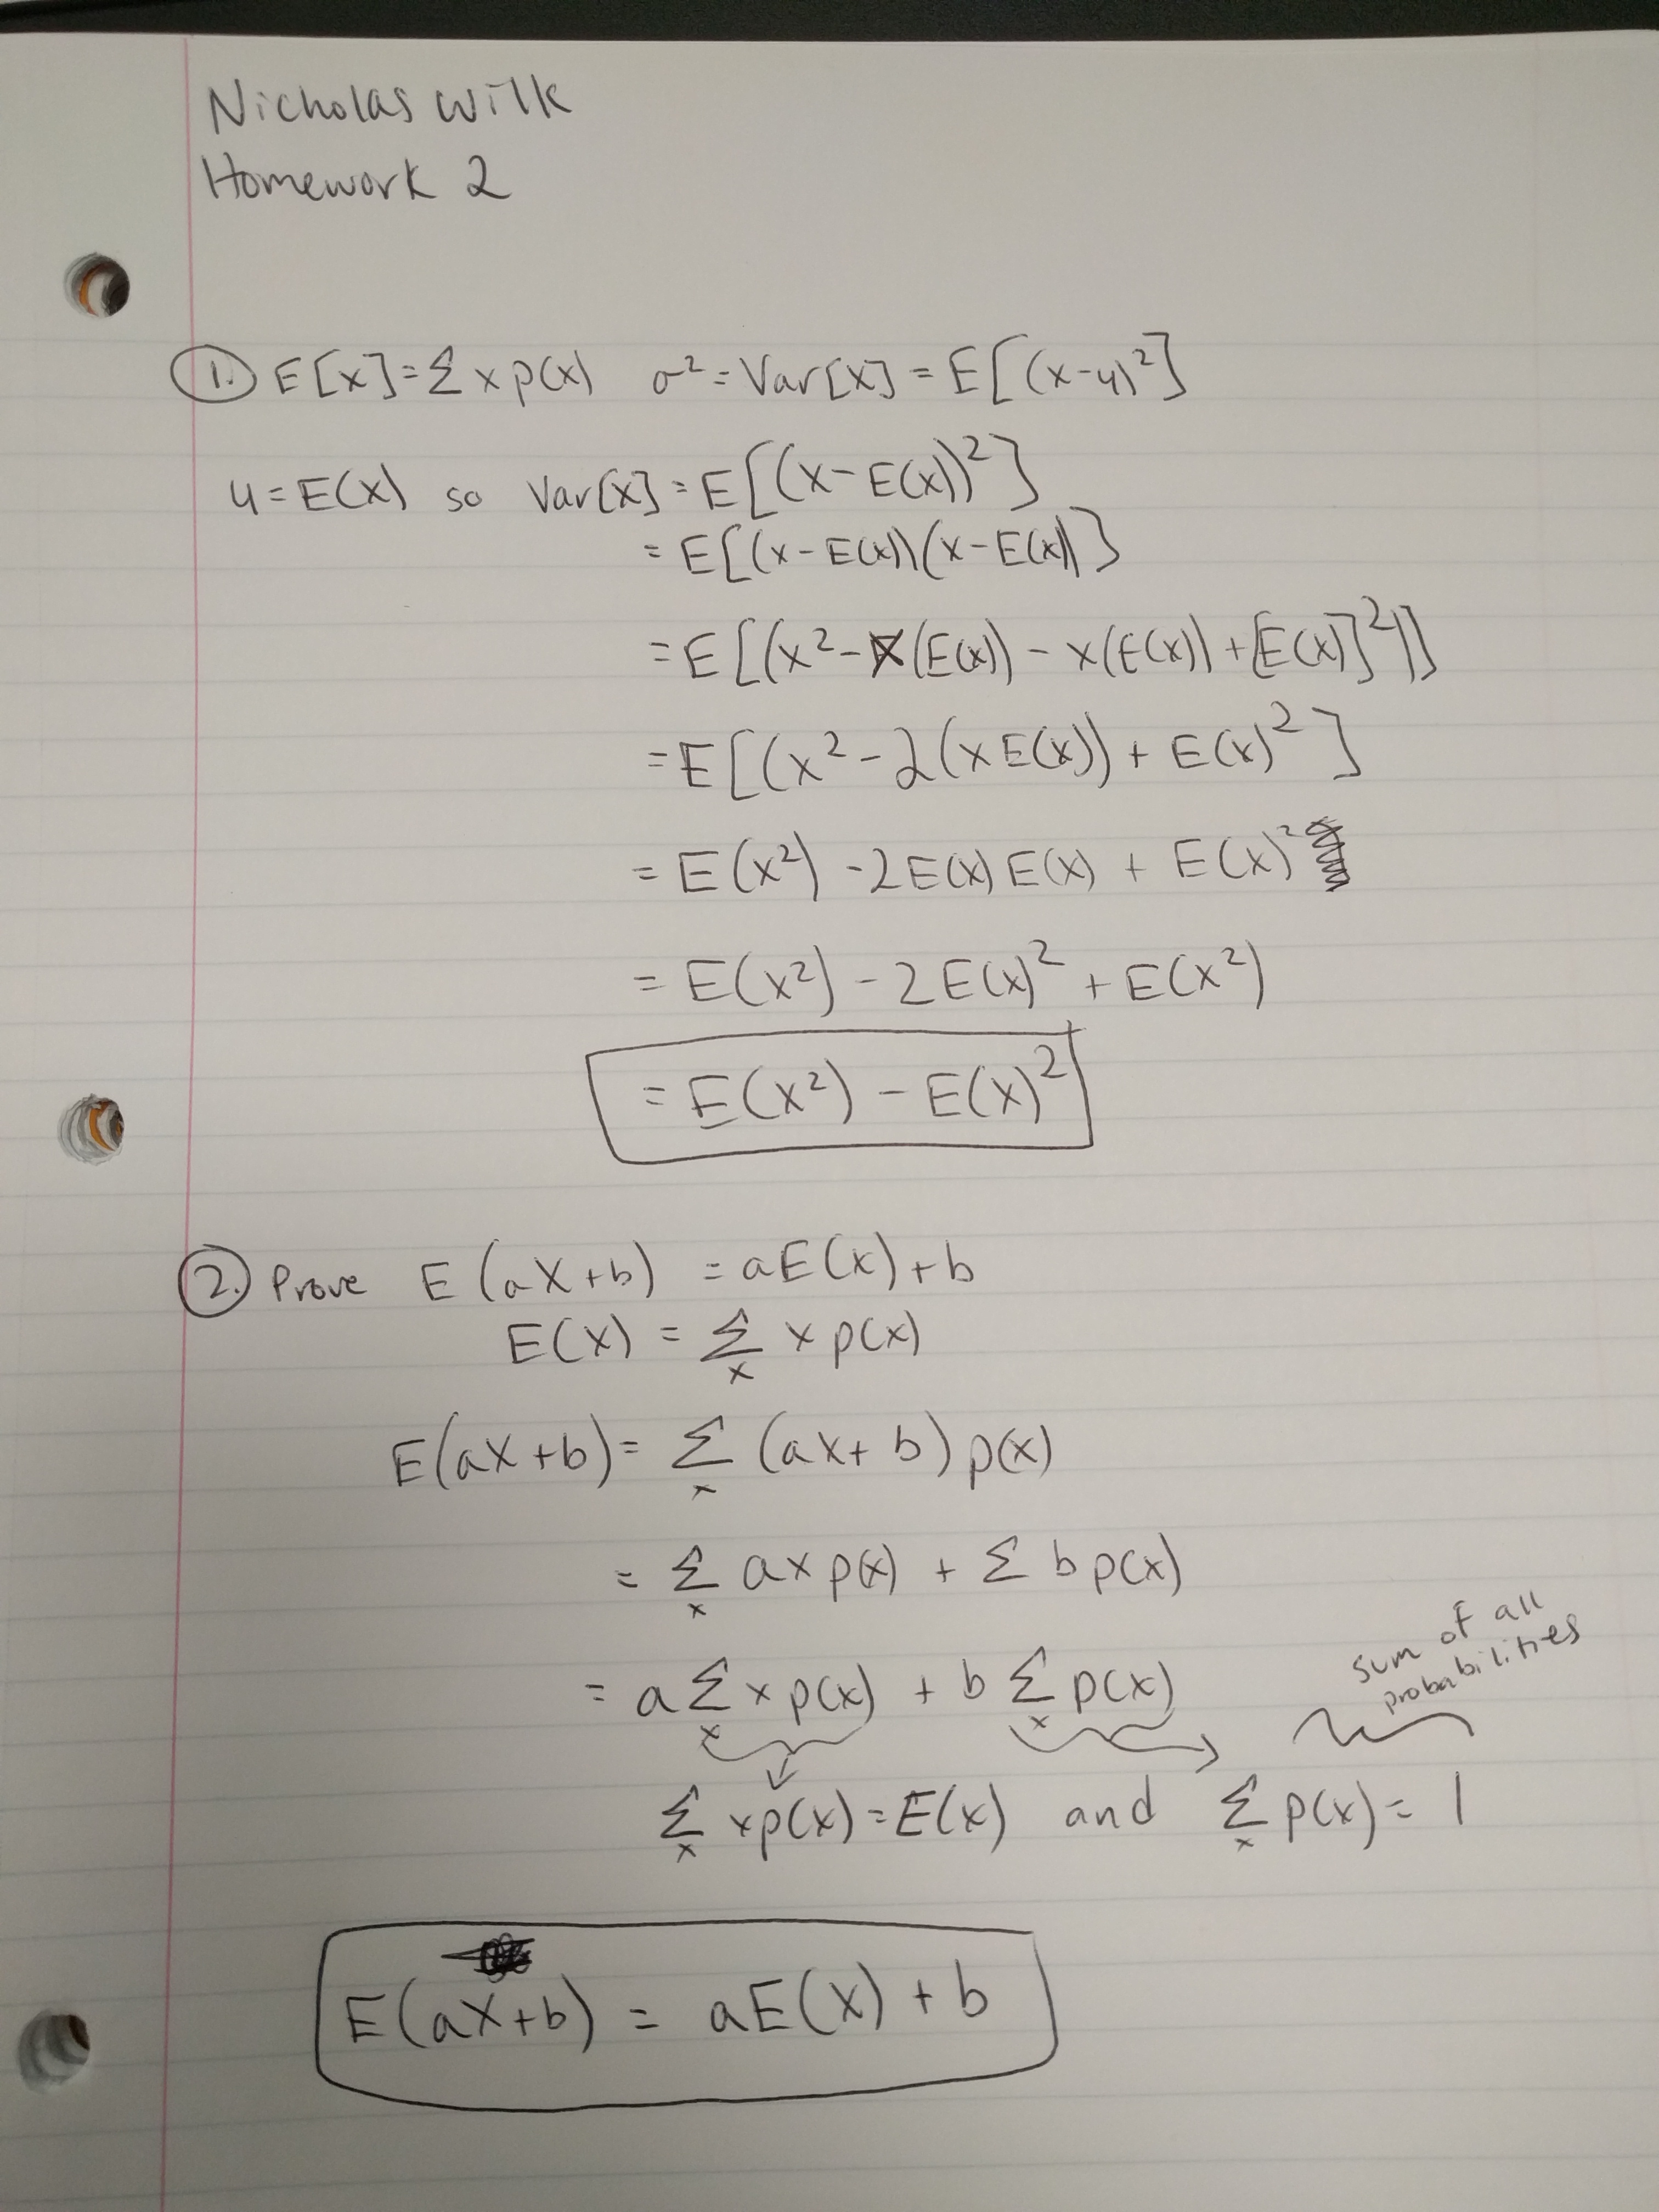 Nicholas Wilk
Homework 2
1. E[x]=Σ x p(x) σ²=Var[x] = E[(x-u)²]
u=E(x) so Var[x] = E[(x-E(x))²]
= E[(x-E(x))(x-E(x))]
= E[(x²-x(E(x)) - x(E(x)) + [E(x)]²)]
= E[(x²-2(xE(x)) + E(x)²]
= E(x²) -2E(x)E(x) + E(x)²
= E(x²) - 2E(x)² + E(x²)
= E(x²) - E(x)²
2. Prove E(aX+b) = aE(x)+b
E(X) = Σₓ x p(x)
E(aX+b) = Σₓ (ax+b) p(x)
= Σₓ ax p(x) + Σ b p(x)
= a Σₓ x p(x) + b Σₓ p(x)
sum of all
probabilities
Σₓ xp(x) = E(x) and Σₓ p(x) = 1
E(aX+b) = aE(X) + b